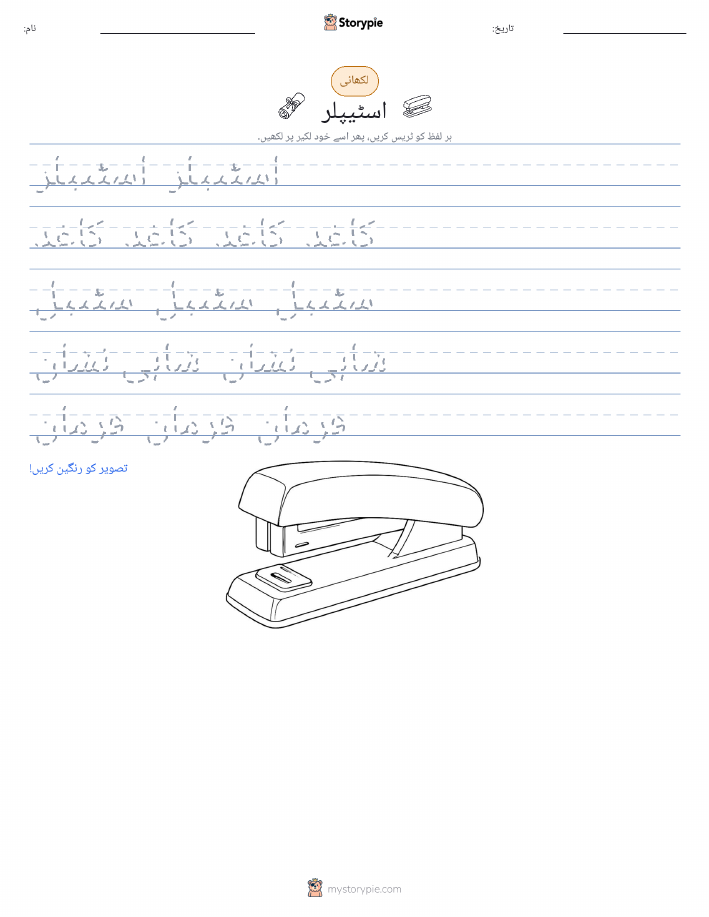 نام:
Storypie
تاریخ:
لکھائی
اسٹیپلر
ہر لفظ کو ٹریس کریں، پھر اسے خود لکیر پر لکھیں۔
اسٹیپلر اسٹیپلر
کاغذ کاغذ کاغذ کاغذ
سٹیپل سٹیپل سٹیپل
شاہی نشان شاہی نشان
فرمان فرمان فرمان
تصویر کو رنگین کریں!
mystorypie.com